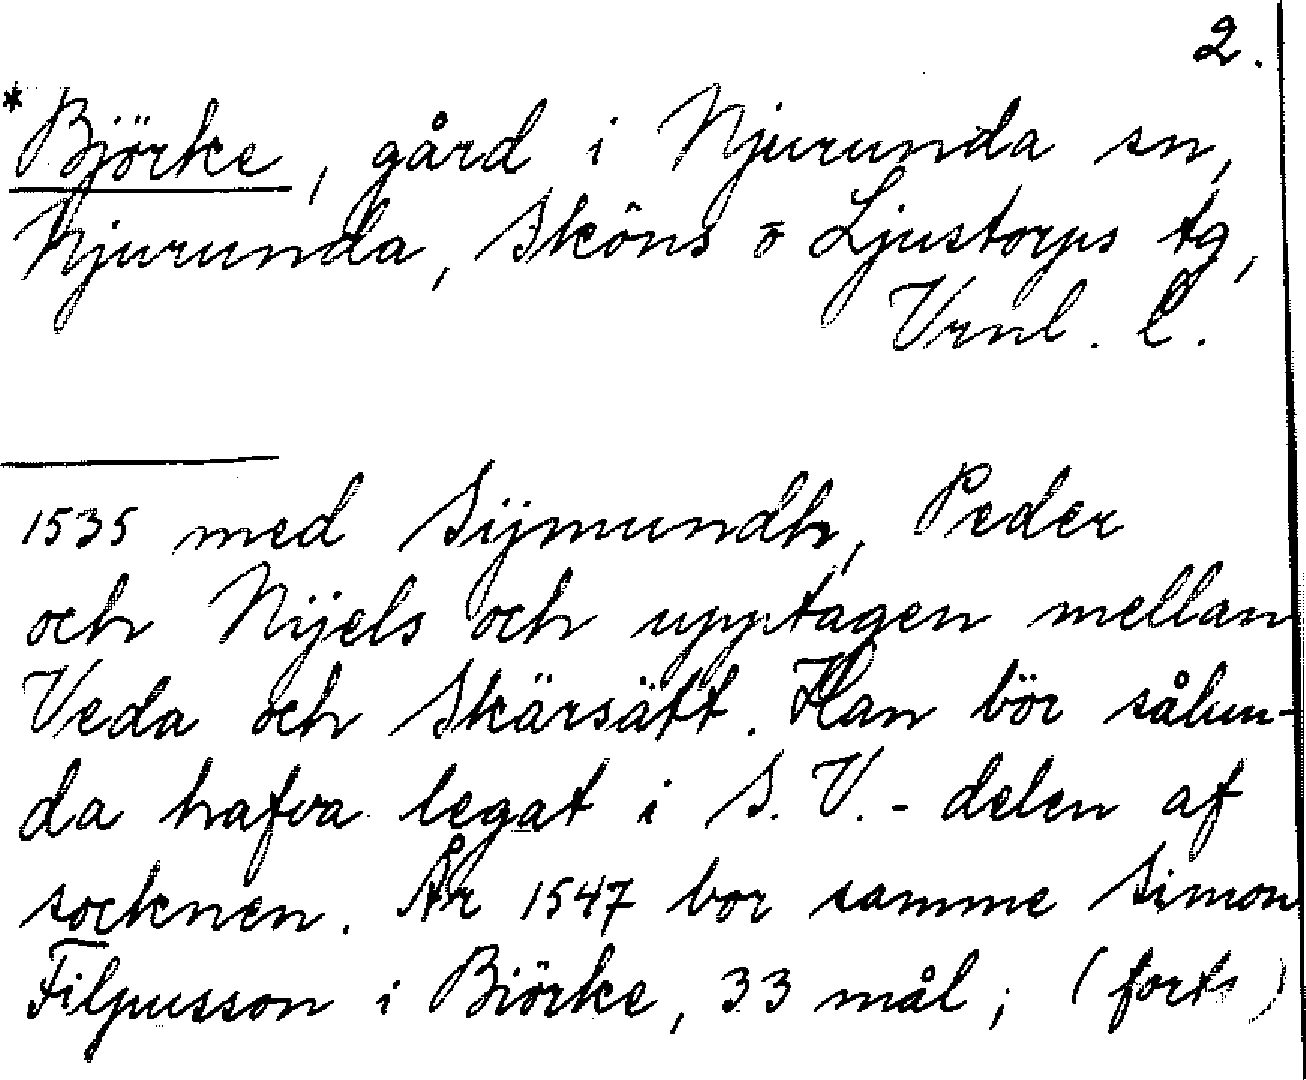 2.
*Björke, gård i Njurunda sn,
Njurunda, Sköns o Ljustorps tg,
Vrnl. l.
1535 med Sijmundh, Peder
och Nijels och upptagen mellan
Veda och Skärsätt. Han bör sålun-
da hafva legat i S.V.-delen af
socknen. År 1547 bor samme Simon
Filpusson i Biörke, 33 mål; (forts)